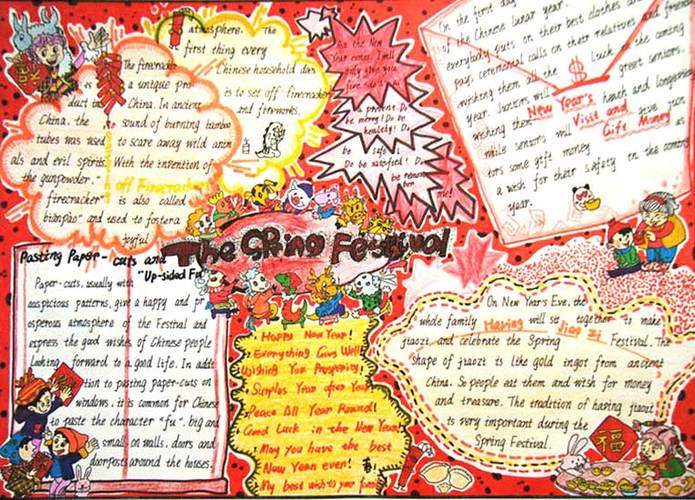 The firecracker
is a unique pro
duct in China. In ancient
China. the sound of burning bamboo
tubes was used to scare away wild anim
als and evil spirits. With the invention of
the gunpowder."
off Firecracker
firecracker is also called
bianpao" and used to fostera
joyful
atmosphere. The
first thing every
Chinese household does
is to set off firecracker
and fireworks.
As the New
Year comes. I will
present: Do
be merry! Do be
healthy! Do
be safe!
Do be satisfied! Do
be remember
me!
On the first day
of the Chinese lunar year.
everybody puts on their best clothes and
pays ceremonial calls on their relatives and friends
wishing them all the Luck in the coming
year. Juniors will great seniors.
wishing them New Year's health and longevity
while seniors will Visit and give jun
iors some gift money Gift Money as
a wish for their safety in the coming
year.
The Spring Festival
Pasting Paper-cuts and
"Up-sided Fu"
Paper-cuts, usually with
auspicious patterns, give a happy and pr
osperous atmosphere of the Festival and
express the good wishes of Chinese people
looking forward to a good life. In addi
tion to pasting paper-cuts on
windows. it is common for Chinese
to paste the character "fu". big and
small on walls. doors and
doorposts around the houses.
Happy New Year!
Everything Goes Well!
Wishing You Prosperity!
Surplus Year after Year
Peace All Year Round!
Good Luck in the New Year
May you have the best
New Year ever!
My best wish to your family
On New Year's Eve, the
whole family Having will sit together to make
jiaozi and celebrate the Spring Jiao Zi Festival. The
shape of jiaozi is like gold ingot from ancient
China. So people eat them and wish for money
and treasure. The tradition of having jiaozi
is very important during the
Spring Festival.
福